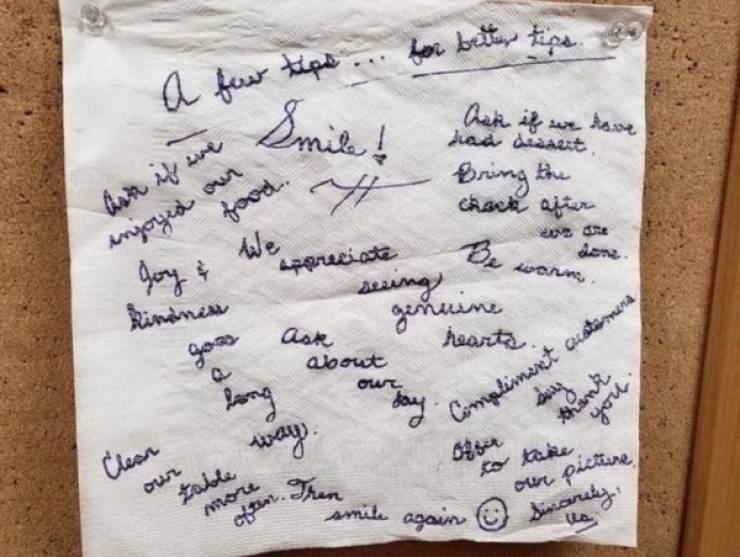 A few tips... for better tips.
Smile!
Ask if we
enjoyed our
food.
Ask if we have
had dessert.
Bring the
check after
we are
done.
Joy &
kindness
goes
a
long
way.
We
appreciate
seeing
genuine
hearts.
Be warm.
Ask
about
our
day.
Compliment customers
Say
thank
you.
Clean
our
table
more
often. Then
smile again
Offer
to take
our picture.
Sincerely,
us